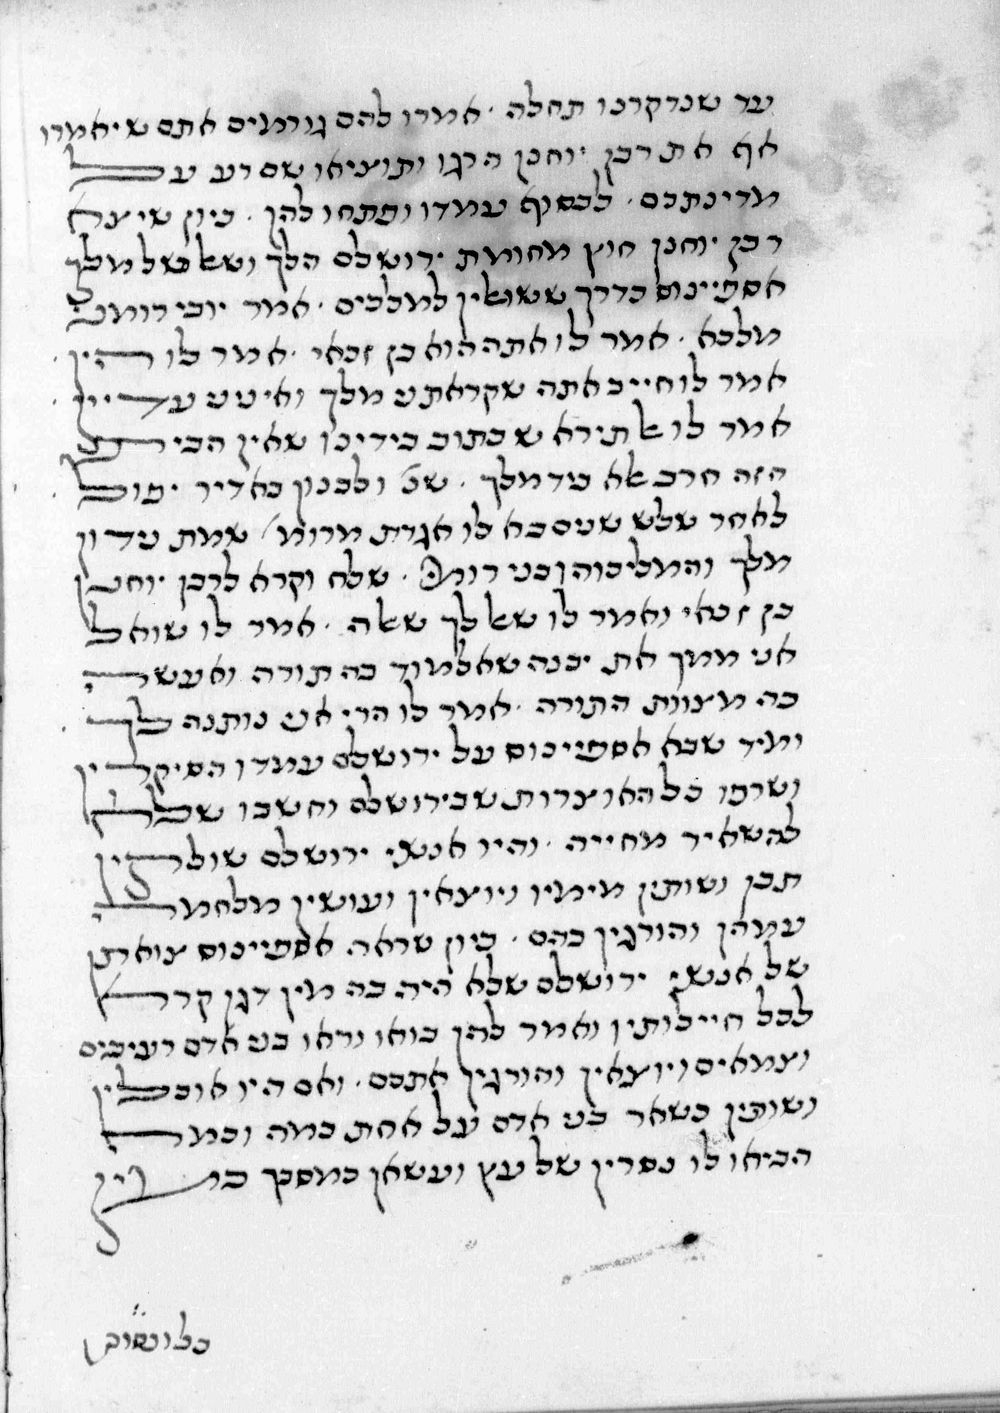 עד שנדקרנו תחלה . אמרו להם גורמים אתם שיאמרו
אף את רבן יוחנן הרגו ותוציאו שם רע על
מדינתכם . לבסוף עמדו ופתחו להן . כיון שיצא
רבן יוחנן חוץ מחומת ירושלם הלך ושאל בשל מלך
אספיינוס כדרך ששואלין למלכים . אמר יובי דומני
מלכא . אמר לו אתה הוא בן זכאי . אמר לו הין .
אמר לו חייב אתה שקראתני מלך ואיני עדיין .
אמר לו אל תירא שכתוב בידינו שאין הבית
הזה חרב אלא ביד מלך . שנ' ולבנון באדיר יפול
לאחר שלש שנים בא לו אגרת מרומי שמת נירון
מלך והמליכוהו בני רומי . שלח וקרא לרבן יוחנן
בן זכאי ואמר לו שאל לך שאלה . אמר לו שואל
אני ממך את יבנה שאלמוד בה תורה ואעשה
בה מצוות התורה . אמר לו הרי אני נותנה לך
ומיד שבא אספיינוס על ירושלם עמדו הסיקרין
ושרפו כל האוצרות שבירושלם וחשבו שלא
להשאיר מחייה . והיו אנשי ירושלם שולקין
תבן ושותין מימיו ויוצאין ועושין מלחמה
עמהן והורגין בהם . כיון שראה אספיינוס צואתן
של אנשי ירושלם שלא היה בה מין דגן קרא
לכל חיילותיו ואמר להן בואו וראו בני אדם רעיבים
וצמאים ויוצאין והורגין אתכם . ואם היו אוכלין
ושותין כשאר בני אדם על אחת כמה וכמה
הביאו לו נסרין של עץ ועשאן כמסכך